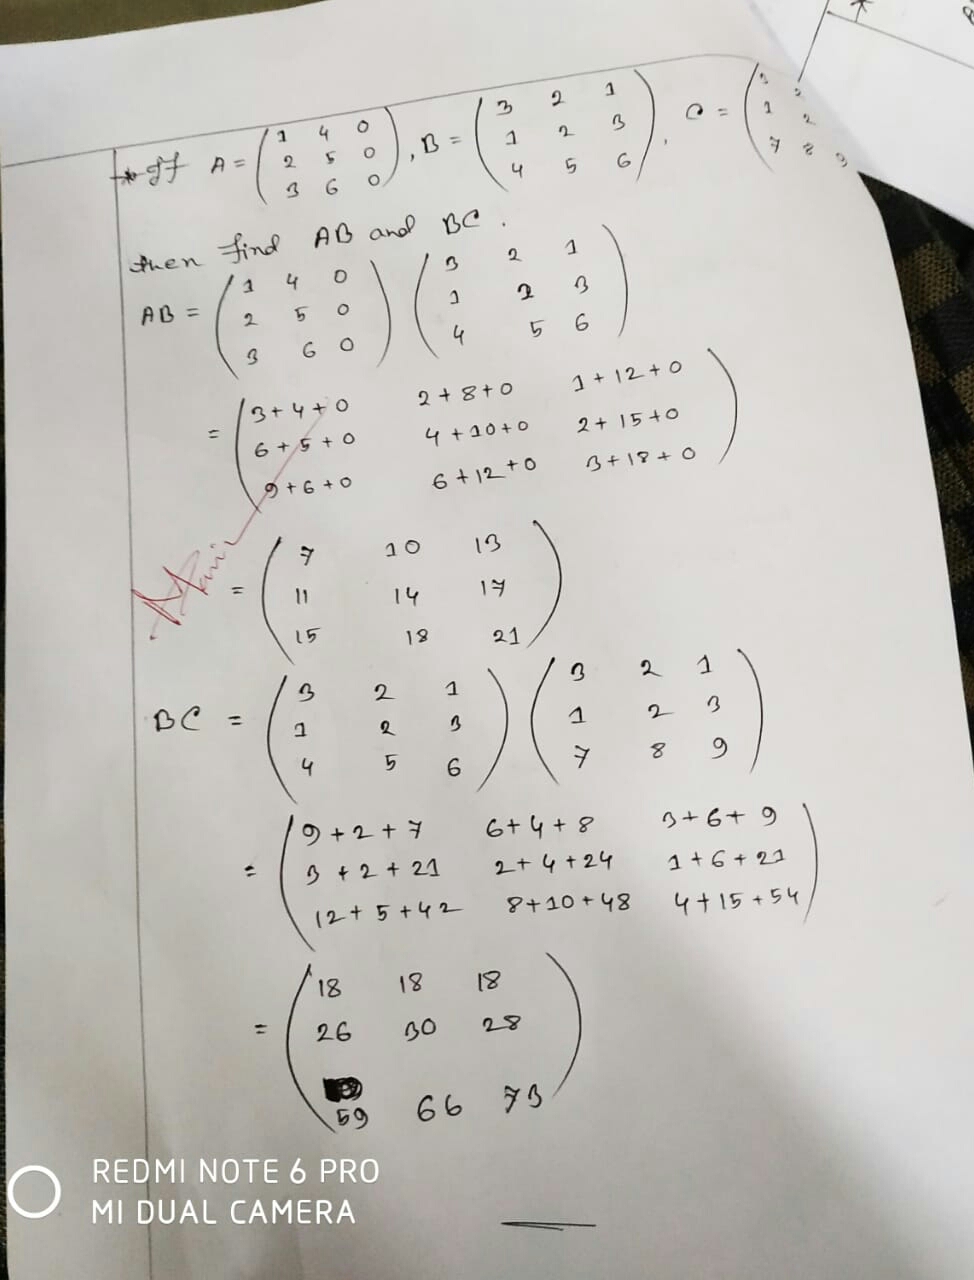 * If A = (1 4 0 , B = (3 2 1 , C = (3 2
2 5 0) 1 2 3) 1 2
3 6 0 4 5 6 7 8 9
then find AB and BC.
AB = (1 4 0) (3 2 1)
2 5 0 1 2 3
3 6 0 4 5 6
= (3+4+0 2+8+0 1+12+0)
6+5+0 4+10+0 2+15+0
9+6+0 6+12+0 3+18+0
= (7 10 13)
11 14 17
15 18 21
BC = (3 2 1) (3 2 1)
1 2 3 1 2 3
4 5 6 7 8 9
= (9+2+7 6+4+8 3+6+9)
3+2+21 2+4+24 1+6+21
12+5+42 8+10+48 4+15+54
= (18 18 18)
26 30 28
59 66 73
REDMI NOTE 6 PRO
MI DUAL CAMERA